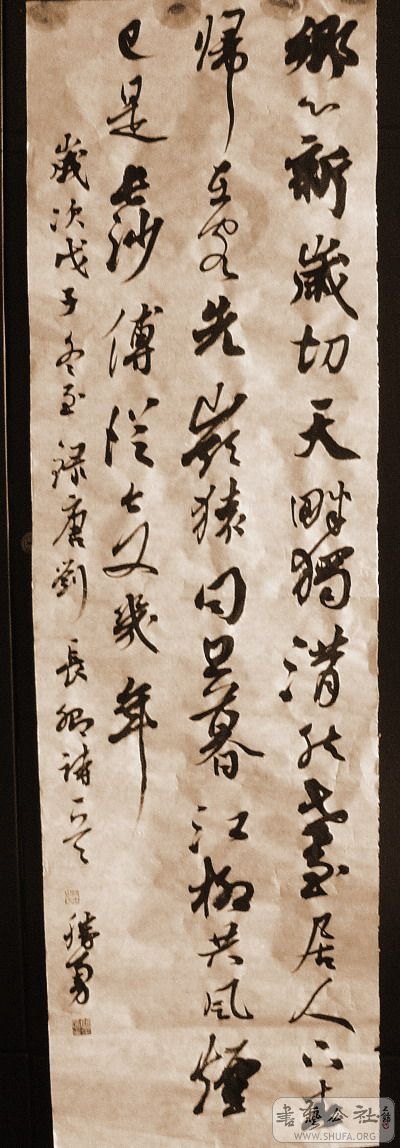 鄉心新歲切天畔獨潸然老至居人下春
歸在客先嶺猿同旦暮江柳共風煙
已是長沙傅從今又幾年
歲次戊子冬至錄唐劉長卿詩一首 勝勇
書藝公社
WWW.SHUFA.ORG